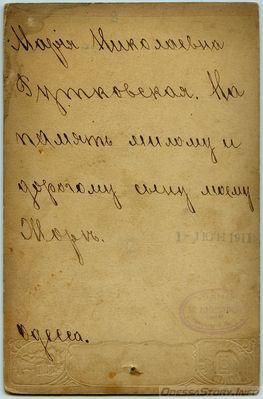 Марiя Николаевна
Гутковская. На
память милому и
дорогому сыну моему
Жоръ.
Одесса.
OdessaStory.Info